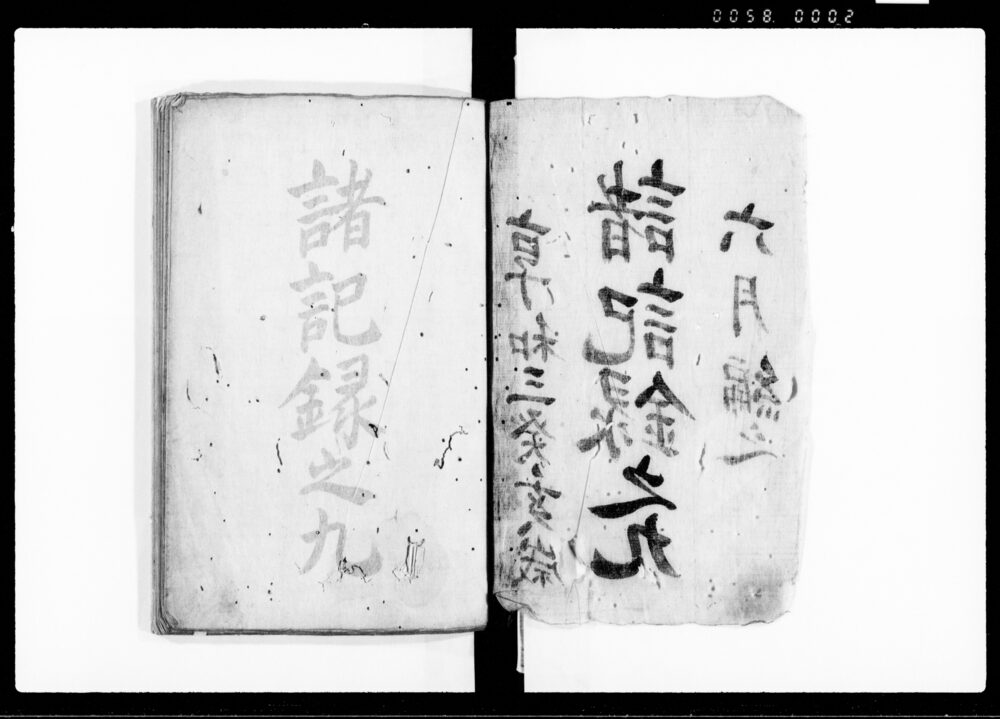 0058. 0002
享和三癸亥歳
諸記録之九
六月編之
諸記録之九